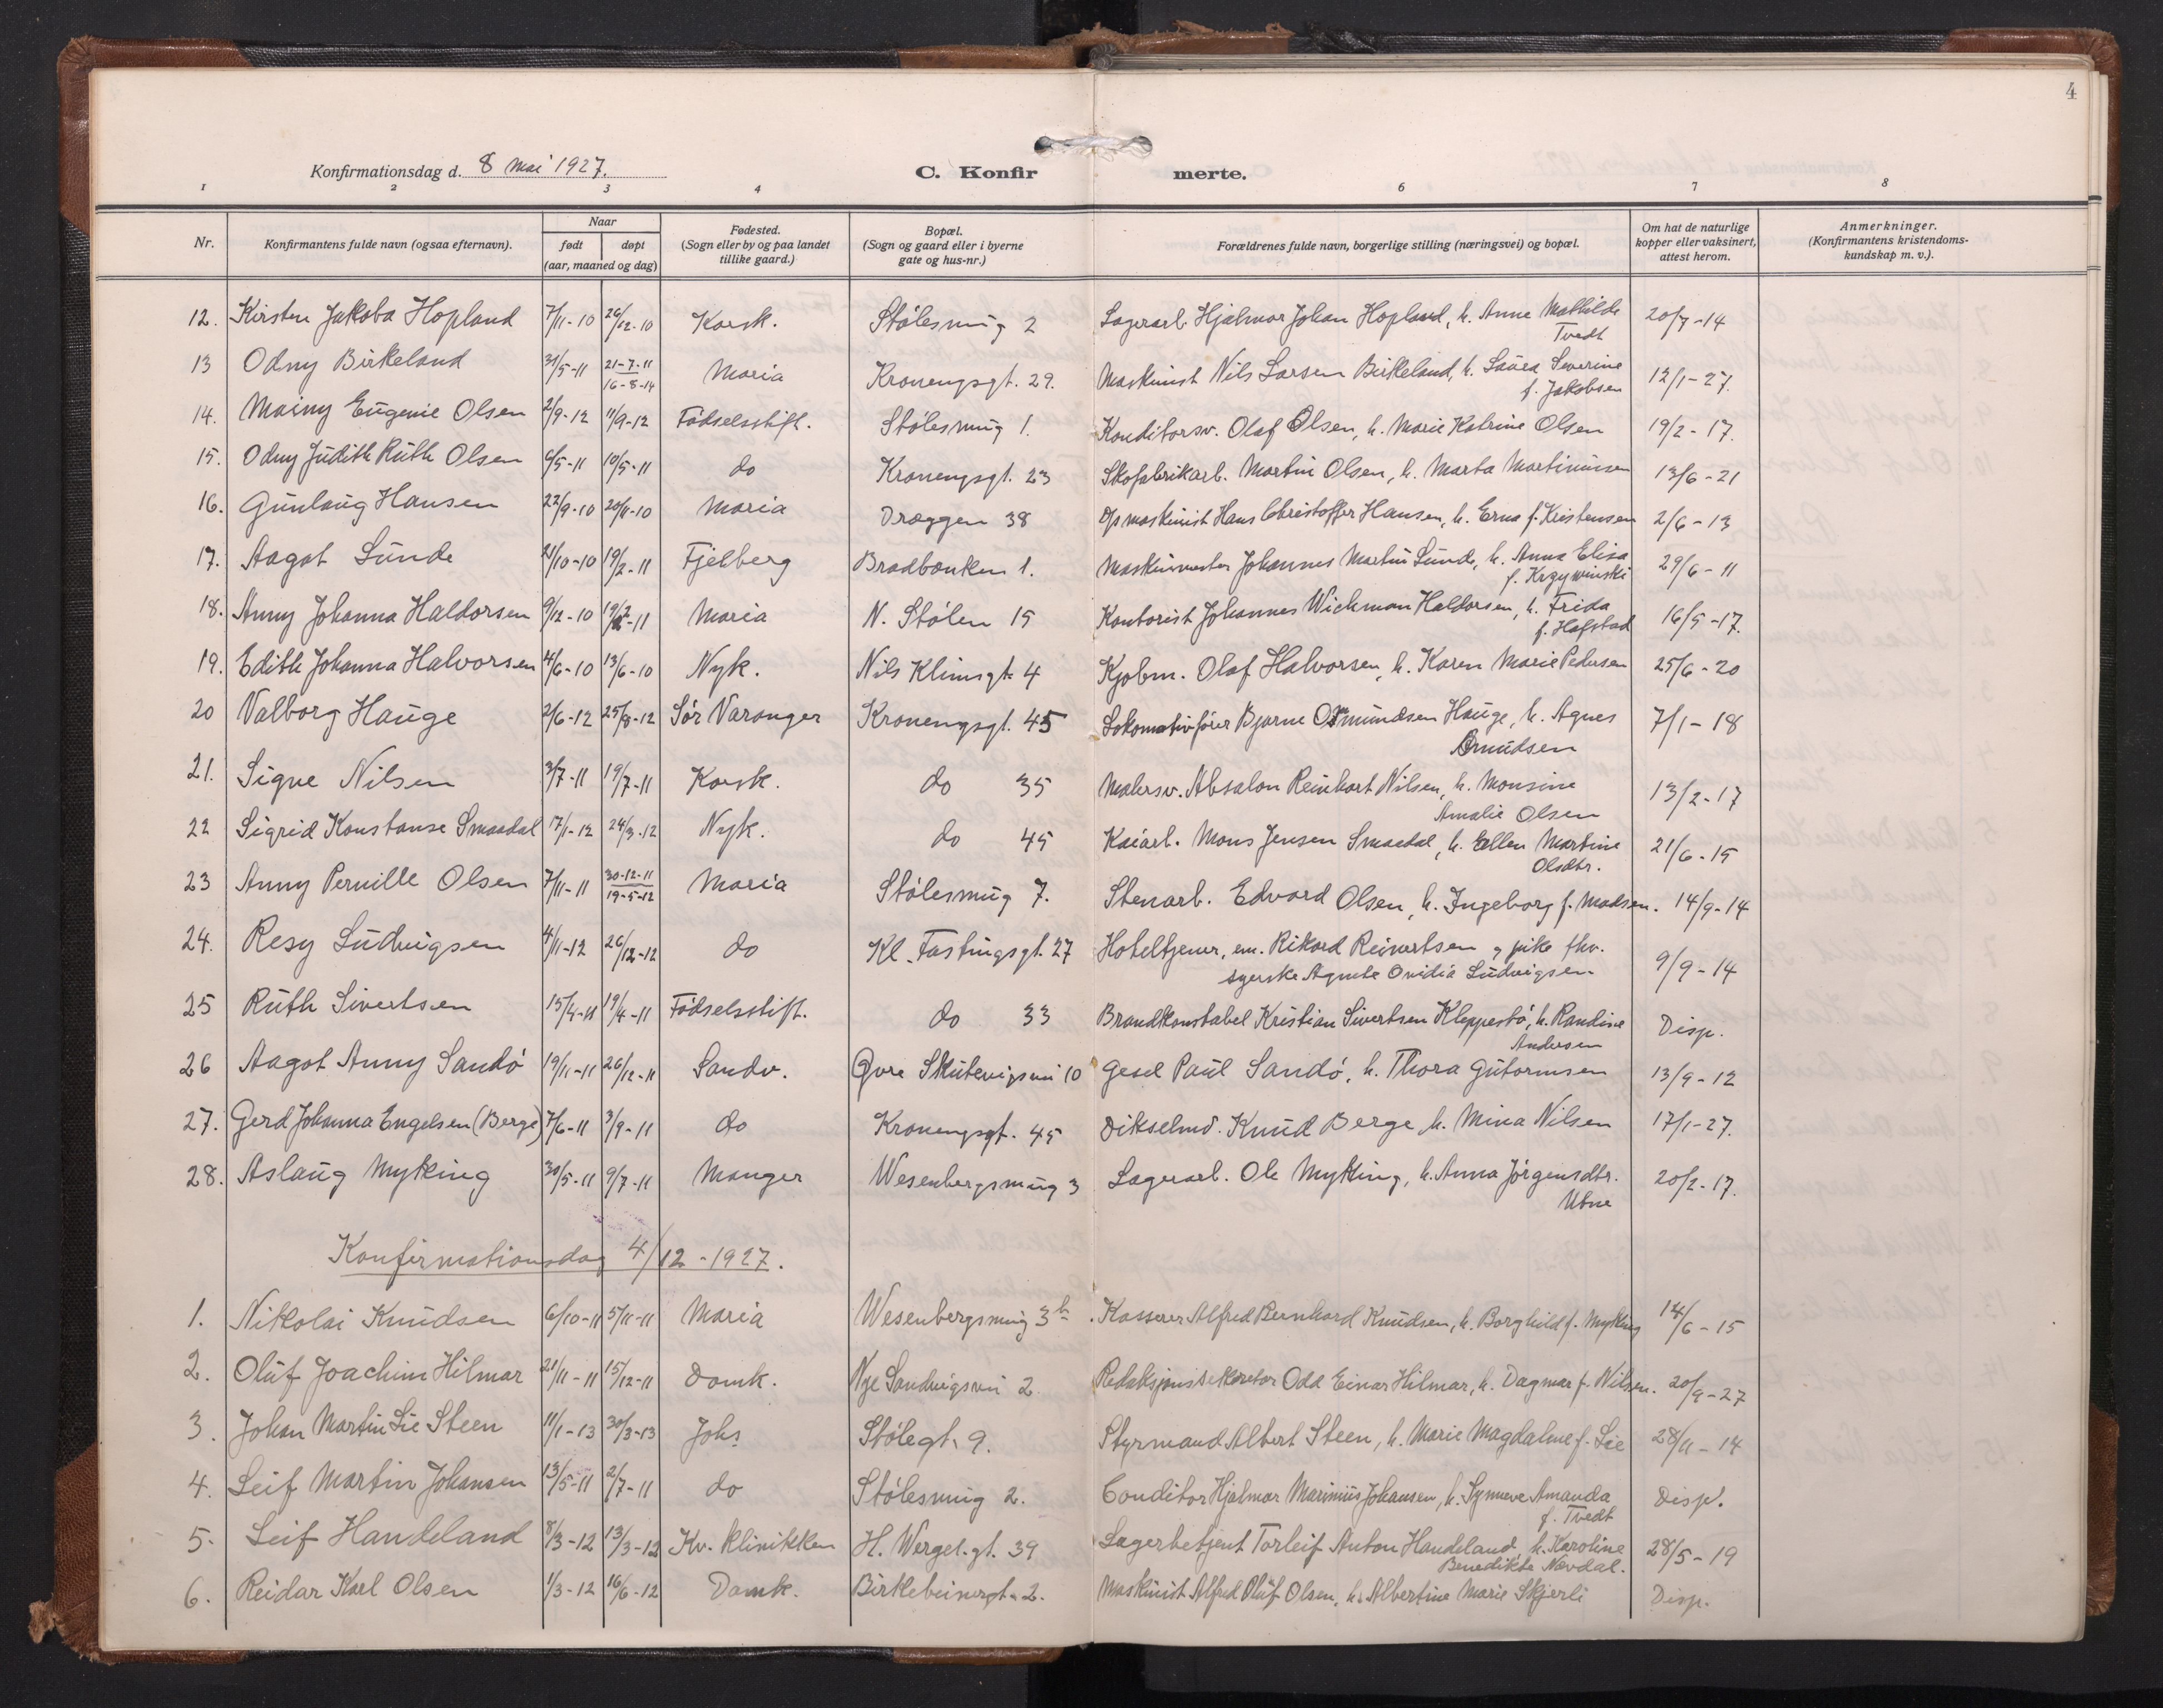 4
Konfirmationsdag d. 8 mai 1927. C. Konfir merte.
1 2 3 4 6 7 8
Nr. Konfirmantens fulde navn (ogsaa efternavn). Naar født døpt (aar, maaned og dag) Fødested. (Sogn eller by og paa landet tillike gaard.) Bopæl. (Sogn og gaard eller i byerne gate og hus-nr.) Forældrenes fulde navn, borgerlige stilling (næringsvei) og bopæl. Om hat de naturlige kopper eller vaksinert, attest herom. Anmerkninger. (Konfirmantens kristendoms-kundskap m. v.).
12. Kirsten Jakoba Hopland 7/11-10 26/12-10 Korsk. Stølesmug 2 Lagerarb. Hjalmar Johan Hopland, h. Anne Mathilde 20/7-14
Tvedt
13 Odny Birkeland 31/5-11 21-7-11 16-8-14 Maria Kronengsgt. 29. Maskinist Nils Larsen Birkeland, h. Laura Severine 12/1-27.
f. Jakobsen
14. Mainy Eugenie Olsen 2/9-12 11/9-12 Fødselsstift. Stølesmug 1. Konditorsv. Olaf Olsen, h. Marie Katrine Olsen 19/2-17.
15. Odny Judith Ruth Olsen 4/5-11 10/5-11 do Kronengsgt. 23 Skofabrikarb. Martin Olsen, h. Marta Martinussen 13/6-21
16. Gunlaug Hansen 22/9-10 20/11-10 Maria Dræggen 38 D/s maskinist Hans Christoffer Hansen, h. Erna f. Kristensen 2/6-13
17. Aagot Sunde 21/10-10 19/2-11 Fjelberg Bradbænken 1. Maskinmester Johannes Martin Sunde, h. Anna Elisa 29/6-11
f. Krzywinski
18. Anny Johanna Haldorsen 9/12-10 19/2-11 Maria N. Stølen 15 Kontorist Johannes Wickman Haldorsen, h. Frida 16/5-17.
f. Hafstad
19. Edith Johanna Halvorsen 4/6-10 13/6-10 Nyk. Nils Klimsgt. 4 Kjøbm. Olaf Halvorsen, h. Karen Marie Pedersen 25/6-20
20 Valborg Hauge 2/6-12 25/8-12 Sør Varanger Kronengsgt. 45 Lokomotivfører Bjarne Osmundsen Hauge, h. Agnes 7/1-18
Amundsen
21. Signe Nilsen 3/7-11 19/7-11 Korsk. do 35 Malersv. Absalon Reinhart Nilsen, h. Monsine 13/2-17
Amalie Olsen
22 Sigrid Konstanse Smaadal 17/1-12 24/3-12 Nyk. do 45 Kaiarb. Mons Jensen Smaadal, h. Ellen Martine 21/6-15
Olsdtr.
23 Anny Pernille Olsen 7/11-11 30-12-11 19-5-12 Maria Stølesmug 7. Stenarb. Edvard Olsen, h. Ingeborg f. Madsen. 14/9-14
24. Resy Ludvigsen 4/11-12 26/12-12 do Kl. Fastingsgt. 27 Hoteltjener, em. Rikard Reinertsen og pike fhv. 9/9-14
syerske Agnete Ovidia Ludvigsen
25 Ruth Sivertsen 15/4-11 19/4-11 Fødselsstift. do 33 Brandkonstabel Kristian Sivertsen Kleppestø, h. Randine Disp.
Andersen
26 Aagot Anny Sandø 19/11-11 26/12-11 Sandv. Øvre Skutevigsvei 10 Gesel Paul Sandø, h. Thora Gutormsen 13/9-12
27. Gerd Johanna Engelsen (Berge) 7/6-11 3/9-11 do Kronengsgt. 45 Dikselmd. Knud Berge, h. Mina Nilsen 17/1-27.
28. Aslaug Myking 30/5-11 9/7-11 Manger Wesenbergsmug 3 Lagerarb. Ole Myking, h. Anna Jørgensdtr. 20/2-17.
Konfirmationsdag 4/12-1927.
1. Nikolai Knudsen 6/10-11 5/11-11 Maria Wesenbergsmug 3b Kasserer Alfred Bernhard Knudsen, h. Borghild f. Myking 14/6-15
2. Oluf Joachim Hilmar 21/11-11 15/12-11 Domk. Nye Sandvigsvei 2 Redaksjonssekretær Odd Einar Hilmar, h. Dagmar f. Nilsen. 20/9-27
3. Johan Martin Lie Steen 11/1-13 30/3-13 Johs Stølegt. 9. Styrmand Albert Steen, h. Marie Magdalene f. Lie 28/11-14
4. Leif Martin Johansen 13/5-11 2/7-11 do Stølesmug 2. Conditor Hjalmar Marinius Johansen, h. Synneve Amanda Disp.
f. Tvedt
5. Leif Handeland 8/3-12 13/3-12 Kv. klinikken H. Wergel.gt. 39 Lagerbetjent Torleif Anton Handeland, h. Karoline 28/5-19
Benedikte Nævdal.
6. Reidar Karl Olsen 1/3-12 16/6-12 Domk. Birkebeinergt. 2. Maskinist Alfred Oluf Olsen, h. Albertine Marie Skjerli Disp.